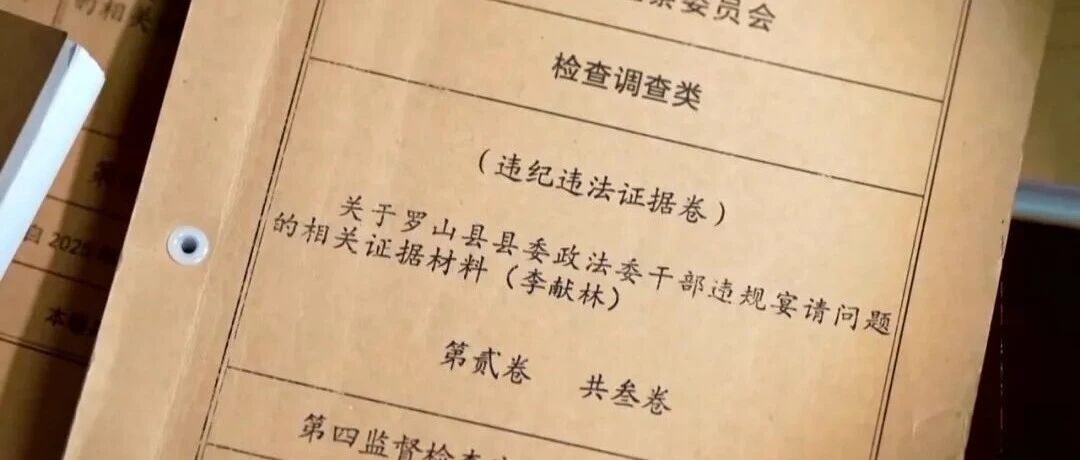 委员会
检查调查类
（违纪违法证据卷）
关于罗山县县委政法委干部违规宴请问题
的相关证据材料（李献林）
第贰卷 共叁卷
第四监督检查
的相关
自 2025
本卷